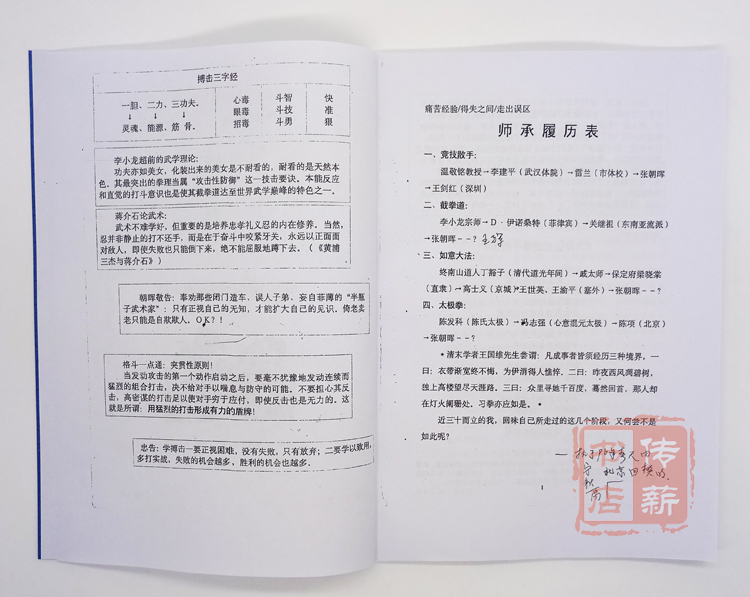 搏击三字经
一胆、二力、三功夫。
↓ ↓ ↓
灵魂、能源、筋 骨。
心毒 斗智 快
眼毒 斗技 准
招毒 斗勇 狠
李小龙超前的武学理论:
功夫亦如美女,化装出来的美女是不耐看的,耐看的是天然本
色。其最突出的拳理当属“攻击性防御”这一技击要诀。本能反应
和直觉的打斗意识也是使其截拳道达至世界武学巅峰的特色之一。
蒋介石论武术:
武术不难学好,但重要的是培养忠孝礼义忍的内在修养。当然,
忍并非静止的打不还手,而是在于奋斗中咬紧牙关,永远以正面面
对敌人,即使失败也只能倒下来,绝不能屈服地蹲下去。(《黄浦
三杰与蒋介石》)
朝晖敬告:奉劝那些闭门造车,误人子弟,妄自菲薄的“半瓶
子武术家”:只有正视自己的无知,才能扩大自己的见识。倚老卖
老只能是自欺欺人。OK?!
格斗一点通:突贯性原则!
当发动攻击的第一个动作启动之后,要毫不犹豫地发动连续而
猛烈的组合打击,决不给对手以喘息与防守的可能。不要担心其反
击,高密谋的打击足以使对手穷于应付,即使反击也是无力的。这
就是所谓:用猛烈的打击形成有力的盾牌!
忠告:学搏击一要正视困难,没有失败,只有放弃;二要学以致用,
多打实战,失败的机会越多,胜利的机会也越多。
痛苦经验/得失之间/走出误区
师承履历表
一、竞技散手:
温敬铭教授→李建平(武汉体院)→雷兰(市体校)→张朝晖
→王剑红(深圳)
二、截拳道:
李小龙宗师→D·伊诺桑特(菲律宾)→关继祖(东南亚流派)
→张朝晖--?
三、如意大法:
终南山道人丁豁子(清代道光年间)→戚太师→保定府梁晓棠
(直隶)→高士义(京城)→王世英、王渝平(塞外)→张朝晖--?
四、太极拳:
陈发科(陈氏太极)→冯志强(心意混元太极)→陈项(北京)
→张朝晖--?
*清末学者王国维先生参谓:凡成事者皆须经历三种境界,一
曰:衣带渐宽终不悔,为伊消得人憔悴。二曰:昨夜西风凋碧树,
独上高楼望尽天涯路。三曰:众里寻她千百度,蓦然回首,那人却
在灯火阑珊处。习拳亦应如是。
近三十而立的我,回味自己所走过的这几个阶段,又何尝不是
如此呢?
传薪
书店